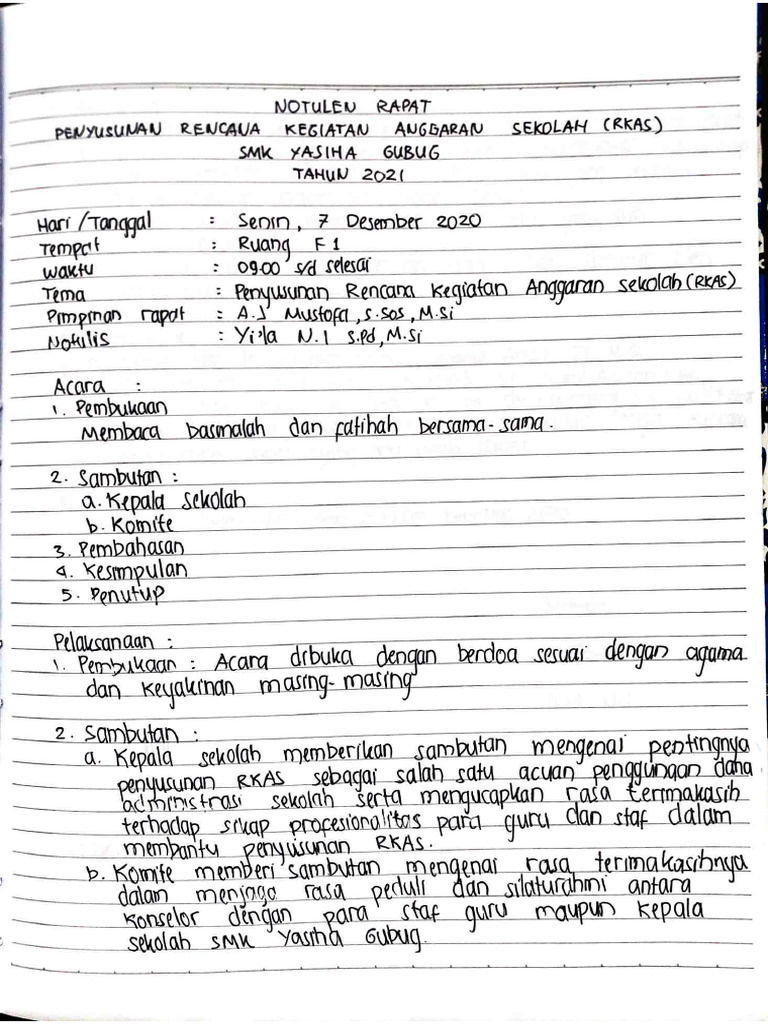 NOTULEN RAPAT
PENYUSUNAN RENCANA KEGIATAN ANGGARAN SEKOLAH (RKAS)
SMK YASIHA GUBUG
TAHUN 2021
Hari/Tanggal : Senin, 7 Desember 2020
Tempat : Ruang F1
Waktu : 09.00 s/d selesai
Tema : Penyusunan Rencana Kegiatan Anggaran Sekolah (RKAS)
Pimpinan rapat : A.J Mustofa, S.Sos, M.Si
Notulis : Yi'la N.I S.Pd, M.Si
Acara :
1. Pembukaan
Membaca basmalah dan fatihah bersama-sama.
2. Sambutan :
a. Kepala sekolah
b. Komite
3. Pembahasan
4. Kesimpulan
5. Penutup
Pelaksanaan :
1. Pembukaan : Acara dibuka dengan berdoa sesuai dengan agama
dan keyakinan masing-masing
2. Sambutan :
a. Kepala sekolah memberikan sambutan mengenai pentingnya
penyusunan RKAS sebagai salah satu acuan penggungan dana
administrasi sekolah serta mengucapkan rasa terimakasih
terhadap sikap procesionalitas para guru dan staf dalam
membantu penyusunan RKAS.
b. Komite memberi sambutan mengenai rasa terimakasihnya
dalam menjaga rasa peduli dan silaturahmi antara
konselor dengan para staf guru maupun kepala
sekolah SMK Yasiha Gubug.